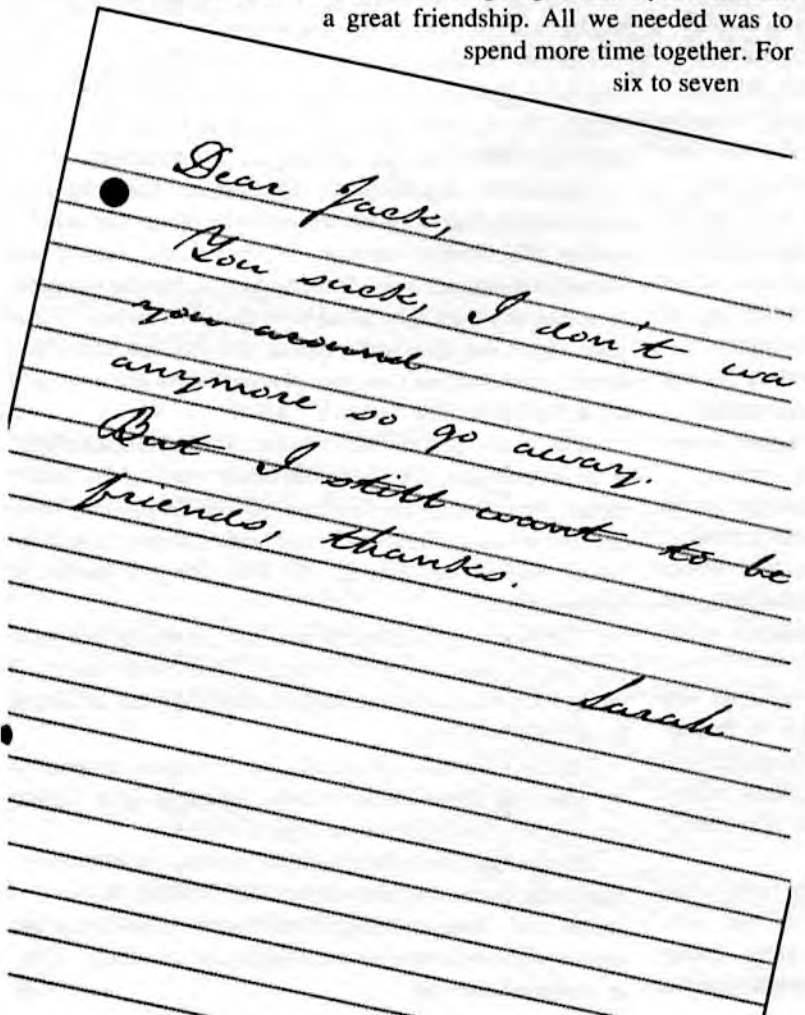 a great friendship. All we needed was to
spend more time together. For
six to seven
Dear Jack,
You suck, I don't wa
you around
anymore so go away.
But I still want to be
friends, thanks.
Sarah